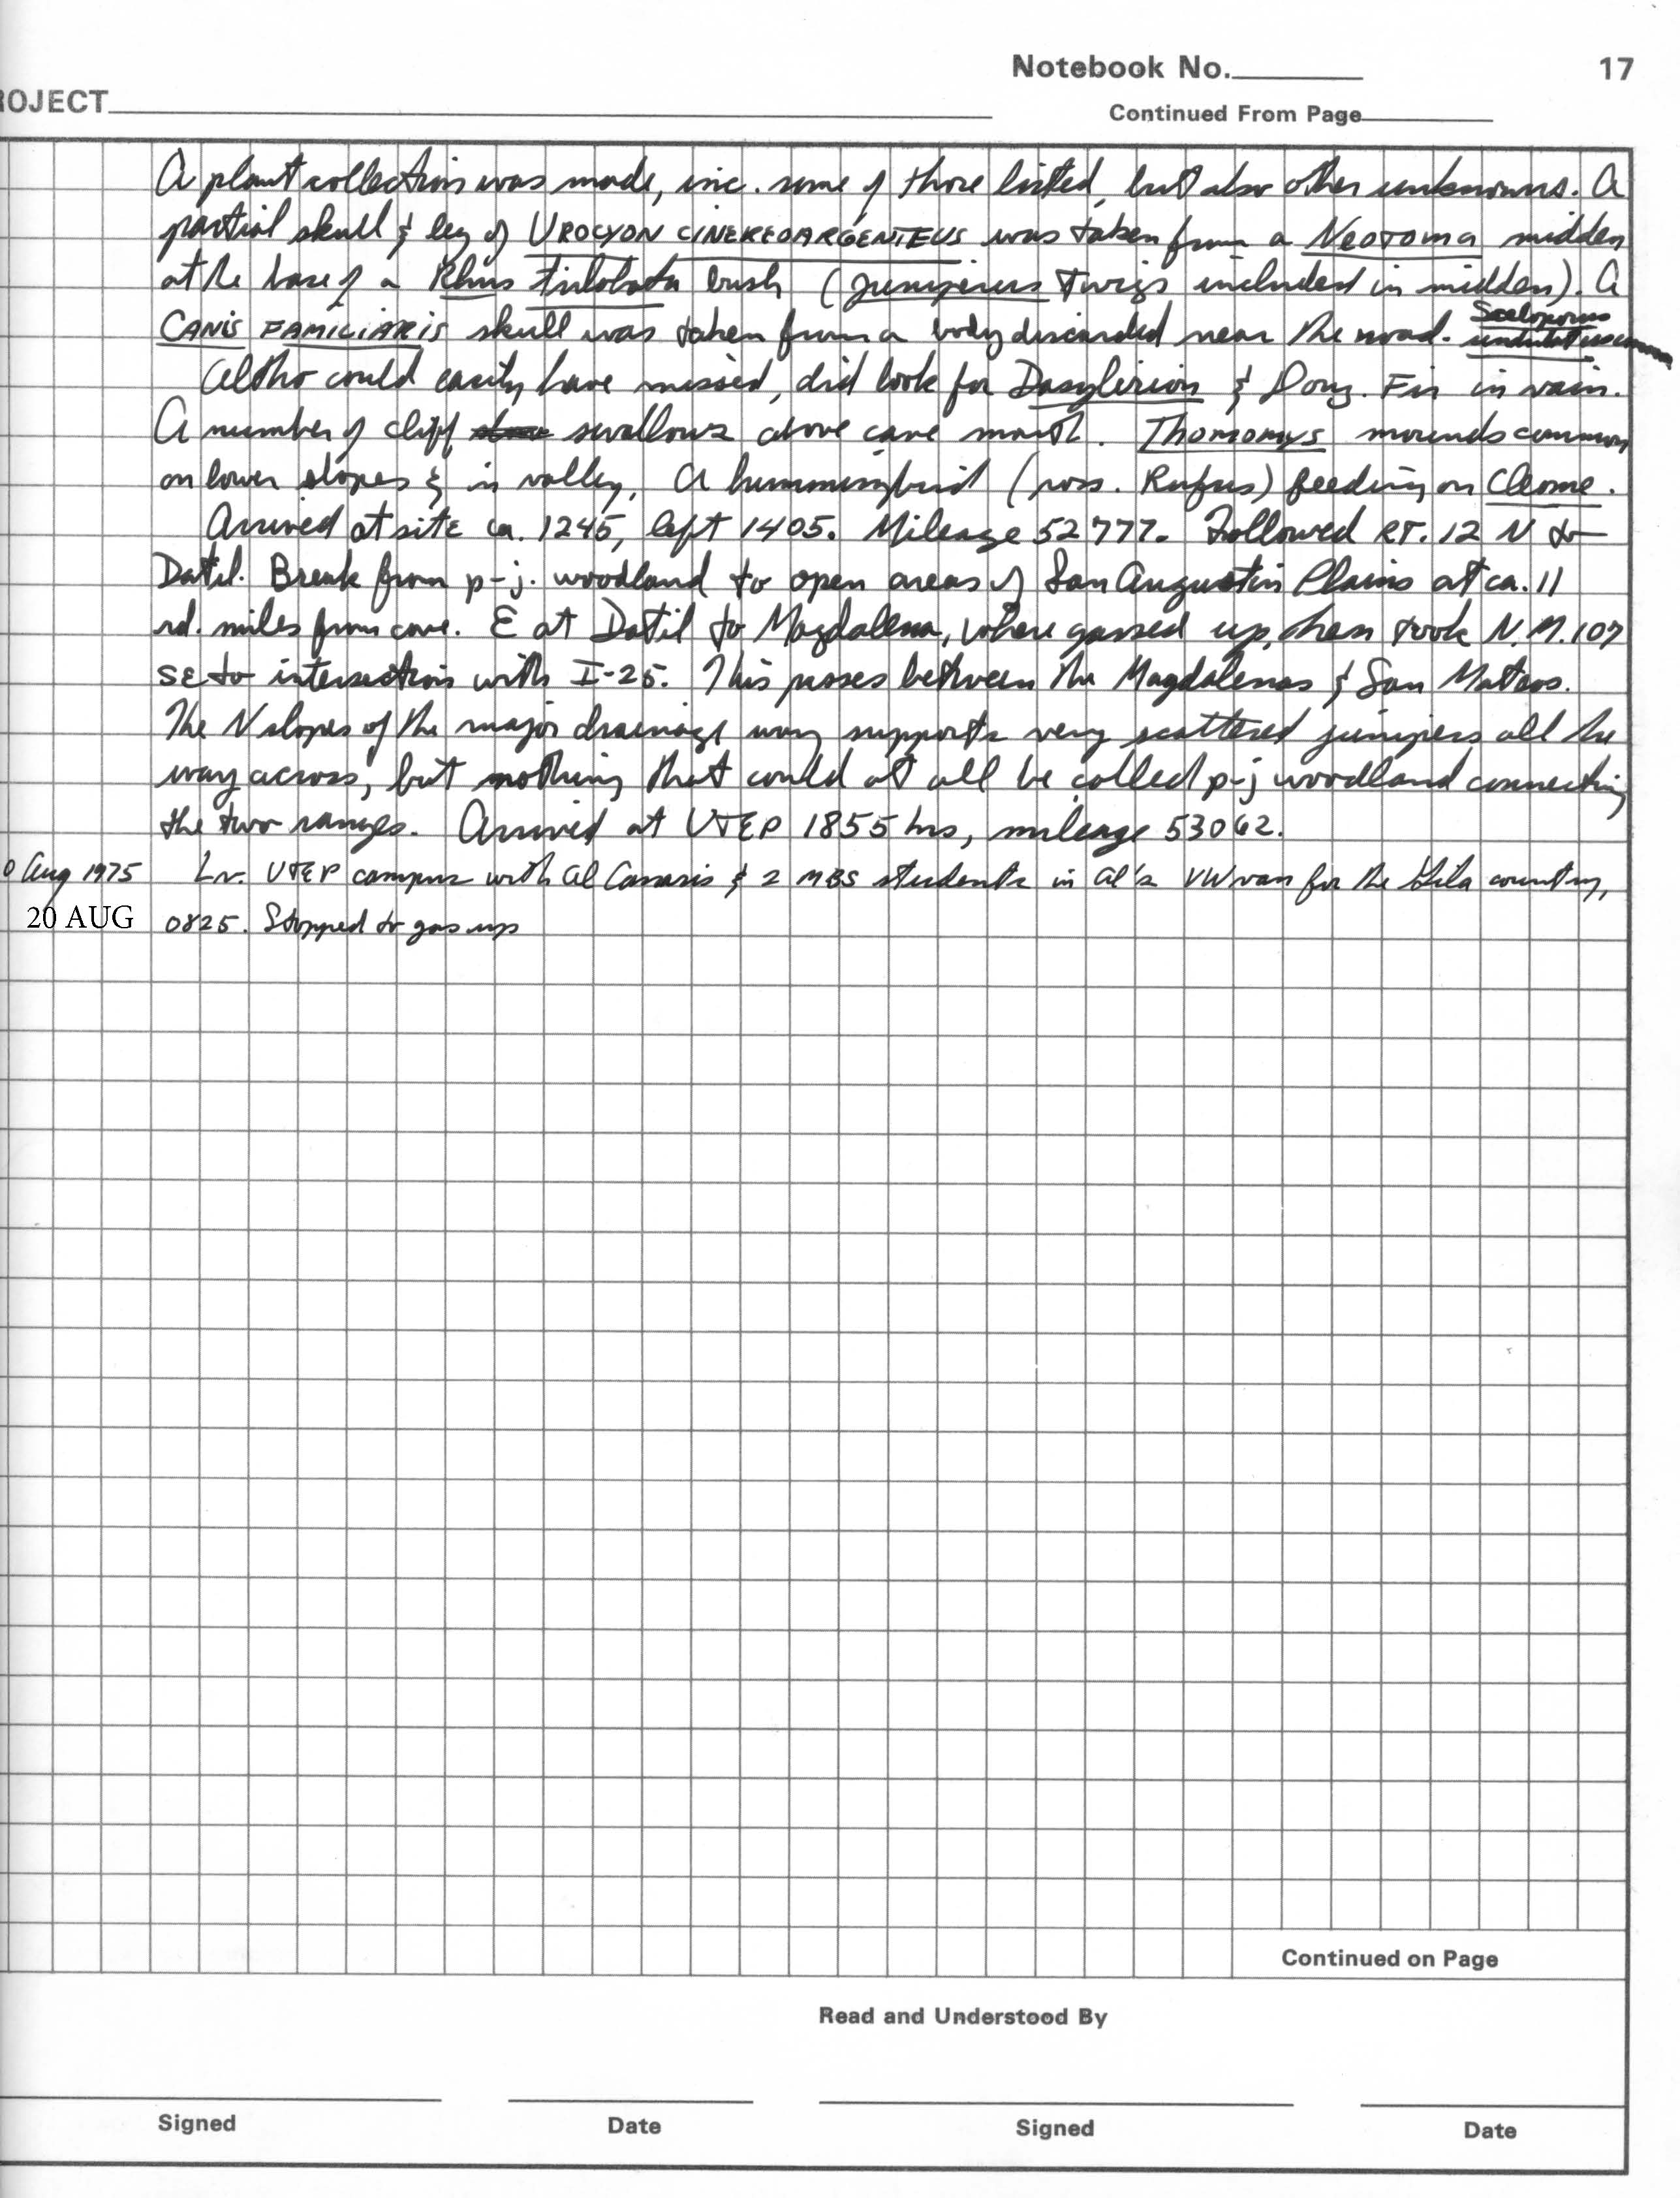 Notebook No. 17
ROJECT
Continued From Page
A plant collection was made, inc. some of those listed, but also other unknowns. A
partial skull & leg of UROCYON CINEREOARGENTEUS was taken from a NEOTOMA midden
at the base of a Rhus trilobata bush (Juniperus twigs included in midden). A
CANIS FAMILIARIS skull was taken from a body discarded near the road. Sceloporus
undulatus common
Altho could easily have missed, did look for Dasylirion & Doug. Fir in vain.
A number of cliff swallows above cave mouth. Thomomys mounds common
on lower slopes & in valley. A hummingbird (poss. Rufus) feeding on Cleome.
Arrived at site ca. 1245, left 1405. Mileage 52777. Followed RT. 12 N to
Datil. Break from p-j. woodland to open areas of San Augustin Plains at ca. 11
rd. miles from cave. E at Datil to Magdalena, where gassed up, then took N.M. 107
SE to intersection with I-25. This passes between the Magdalenas & San Mateos.
The N slopes of the major drainage way supports very scattered junipers all the
way across, but nothing that could at all be called p-j woodland connecting
the two ranges. Arrived at UTEP 1855 hrs, mileage 53062.
0 Aug 1975 Lv. UTEP campus with Al Canaris & 2 MBS students in Al's VW van for the Gila country,
20 AUG 0825. Stopped to gas up
Continued on Page
Read and Understood By
Signed Date Signed Date